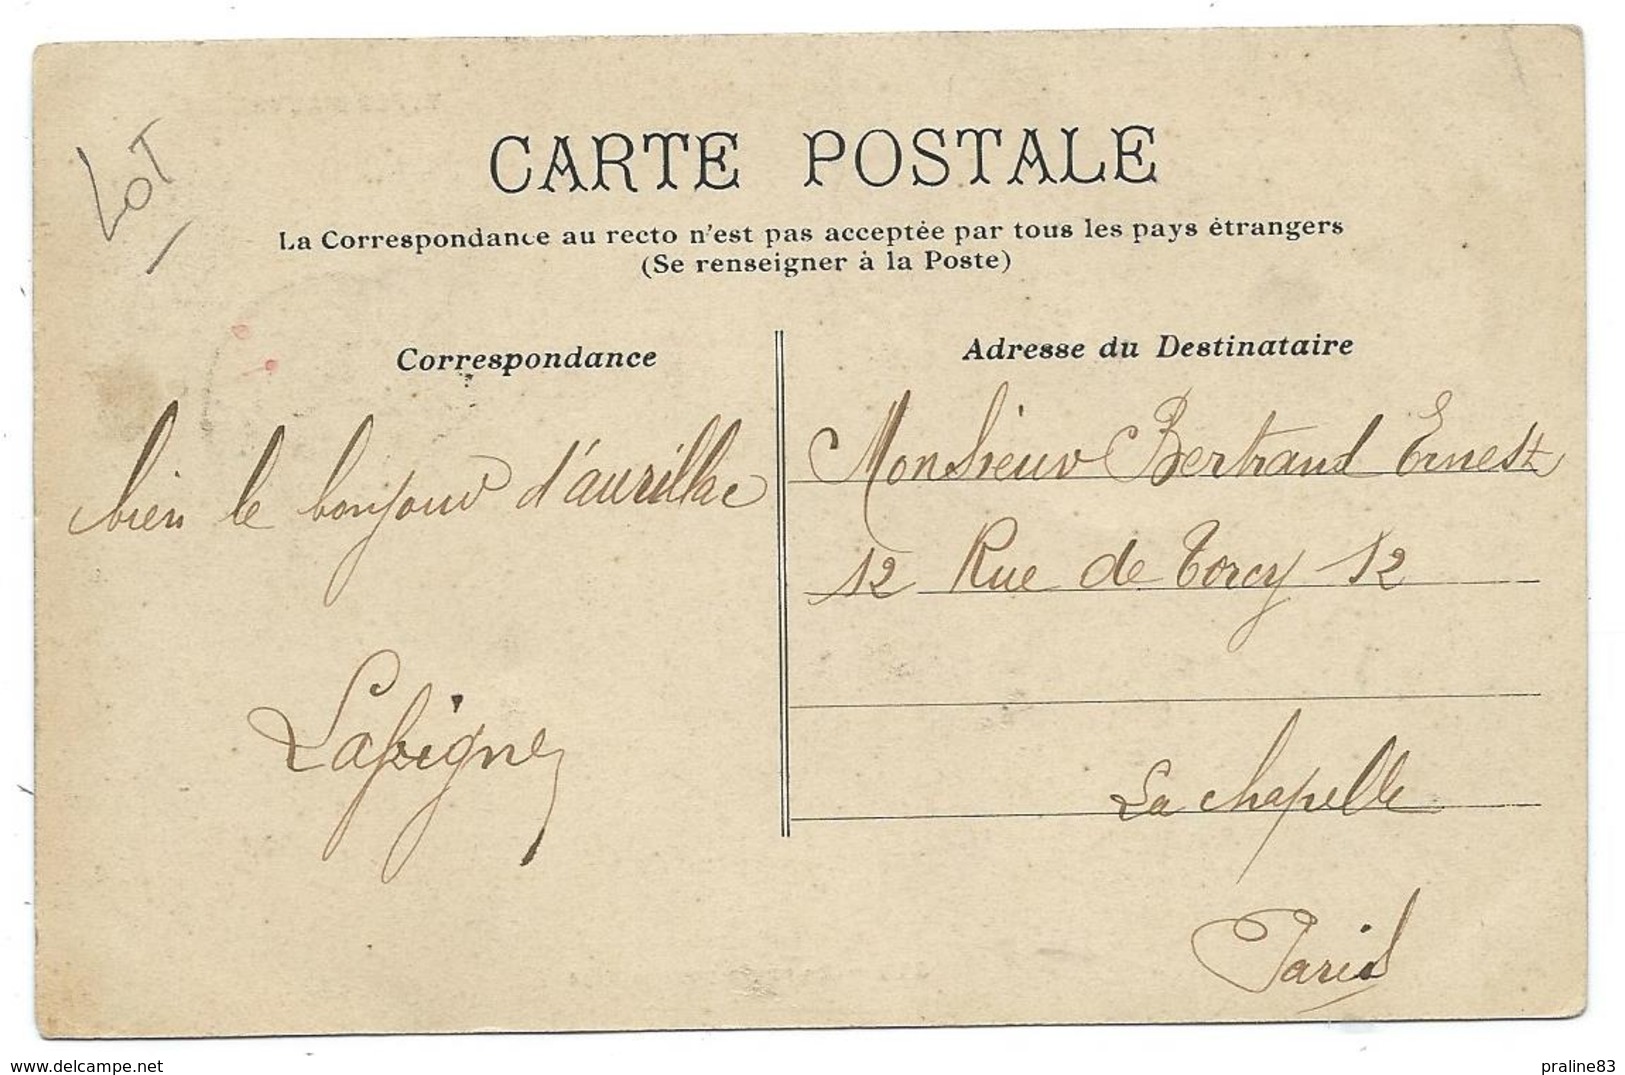 LOT
CARTE POSTALE
La Correspondance au recto n'est pas acceptée par tous les pays étrangers
(Se renseigner à la Poste)
Correspondance
bien le bonjour d'aurillac
Lapigne
Adresse du Destinataire
Monsieur Bertrand Ernest
12 Rue de Torcy 12
La chapelle
Paris
www.delcampe.net
praline83